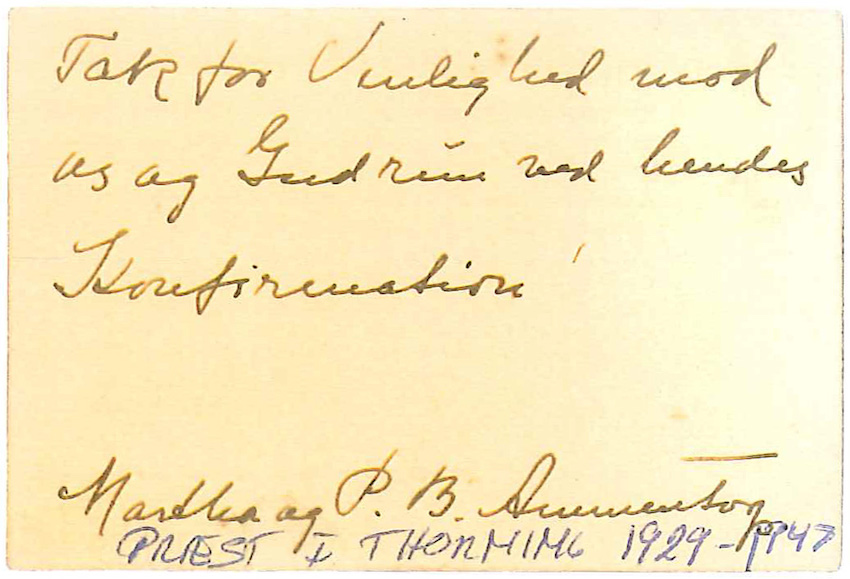 Tak for Venlighed mod
os og Gudrun ved hendes
Konfirmation!
Martha og P. B. Ammentorp
PRÆST I THORNING 1929-1947